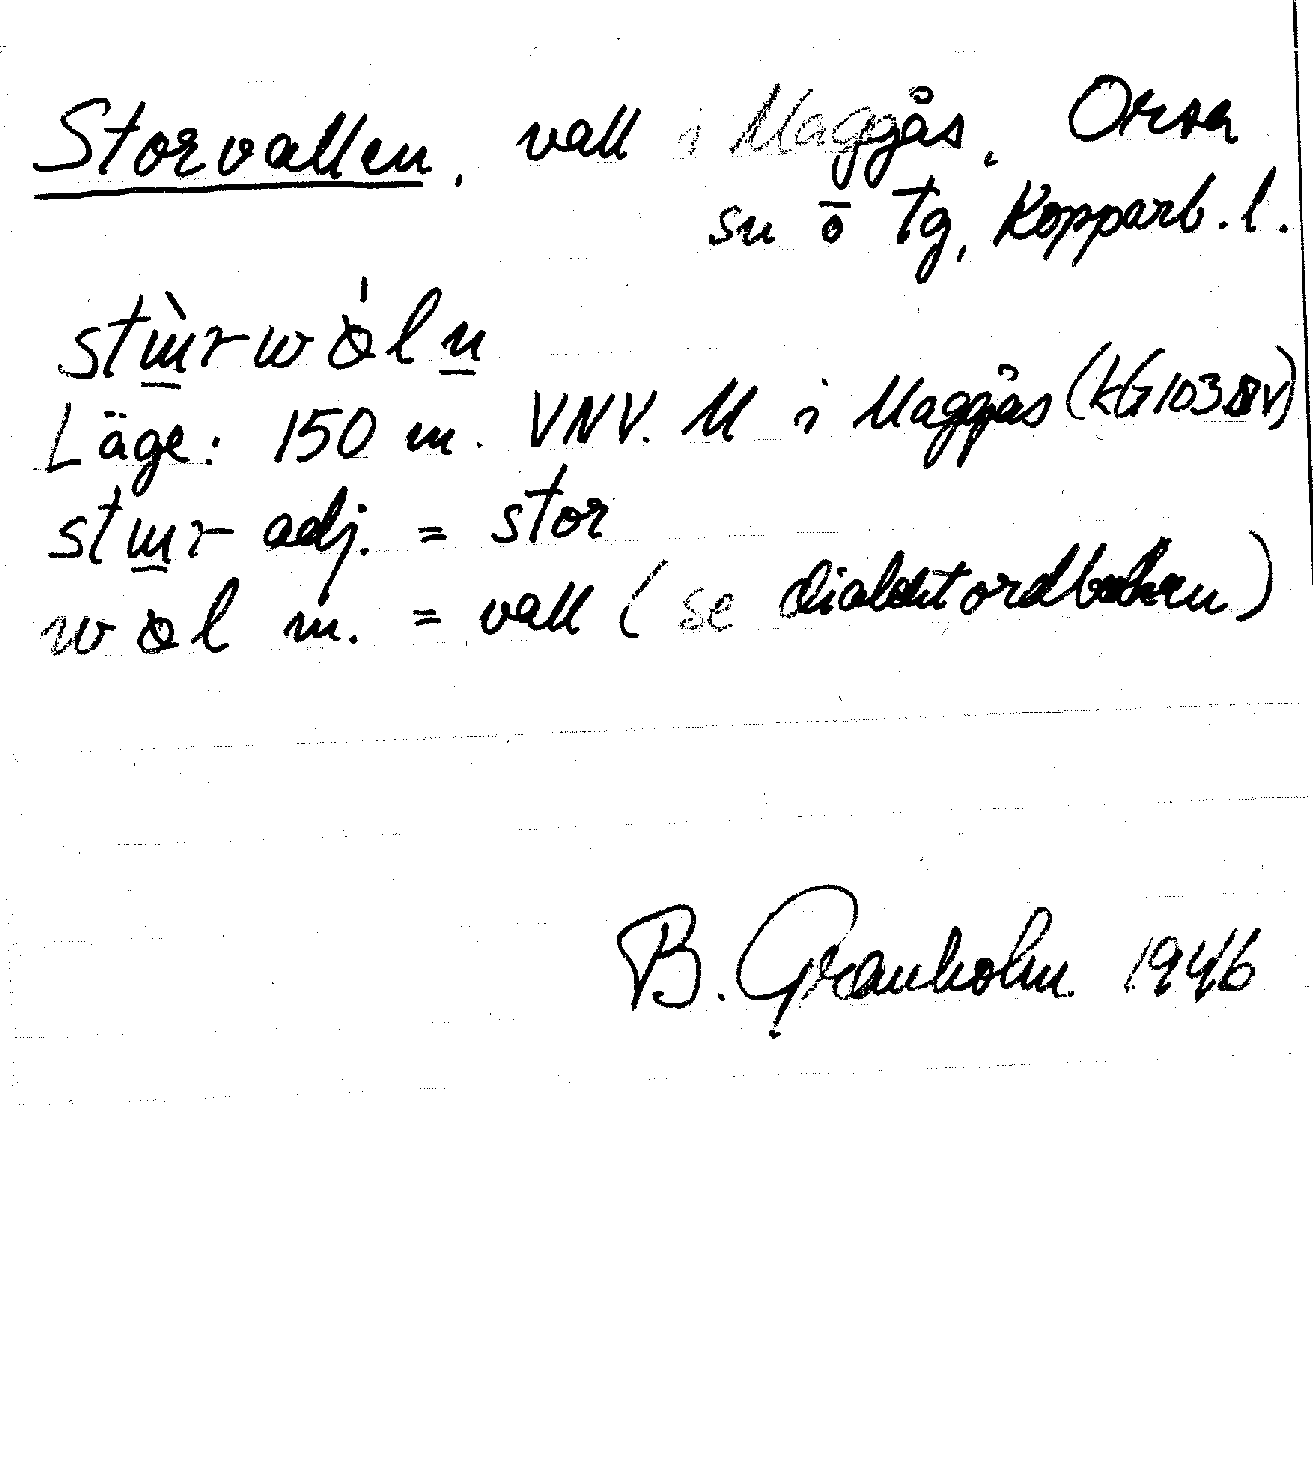 Storvallen. vall i Maggås. Orsa
sn ö Tg, Kopparb. l.
Läge: 150 m. VNV. M i Maggås
adj. = stor
m. = vall (se dialektordboken)
B. Granholm 1946